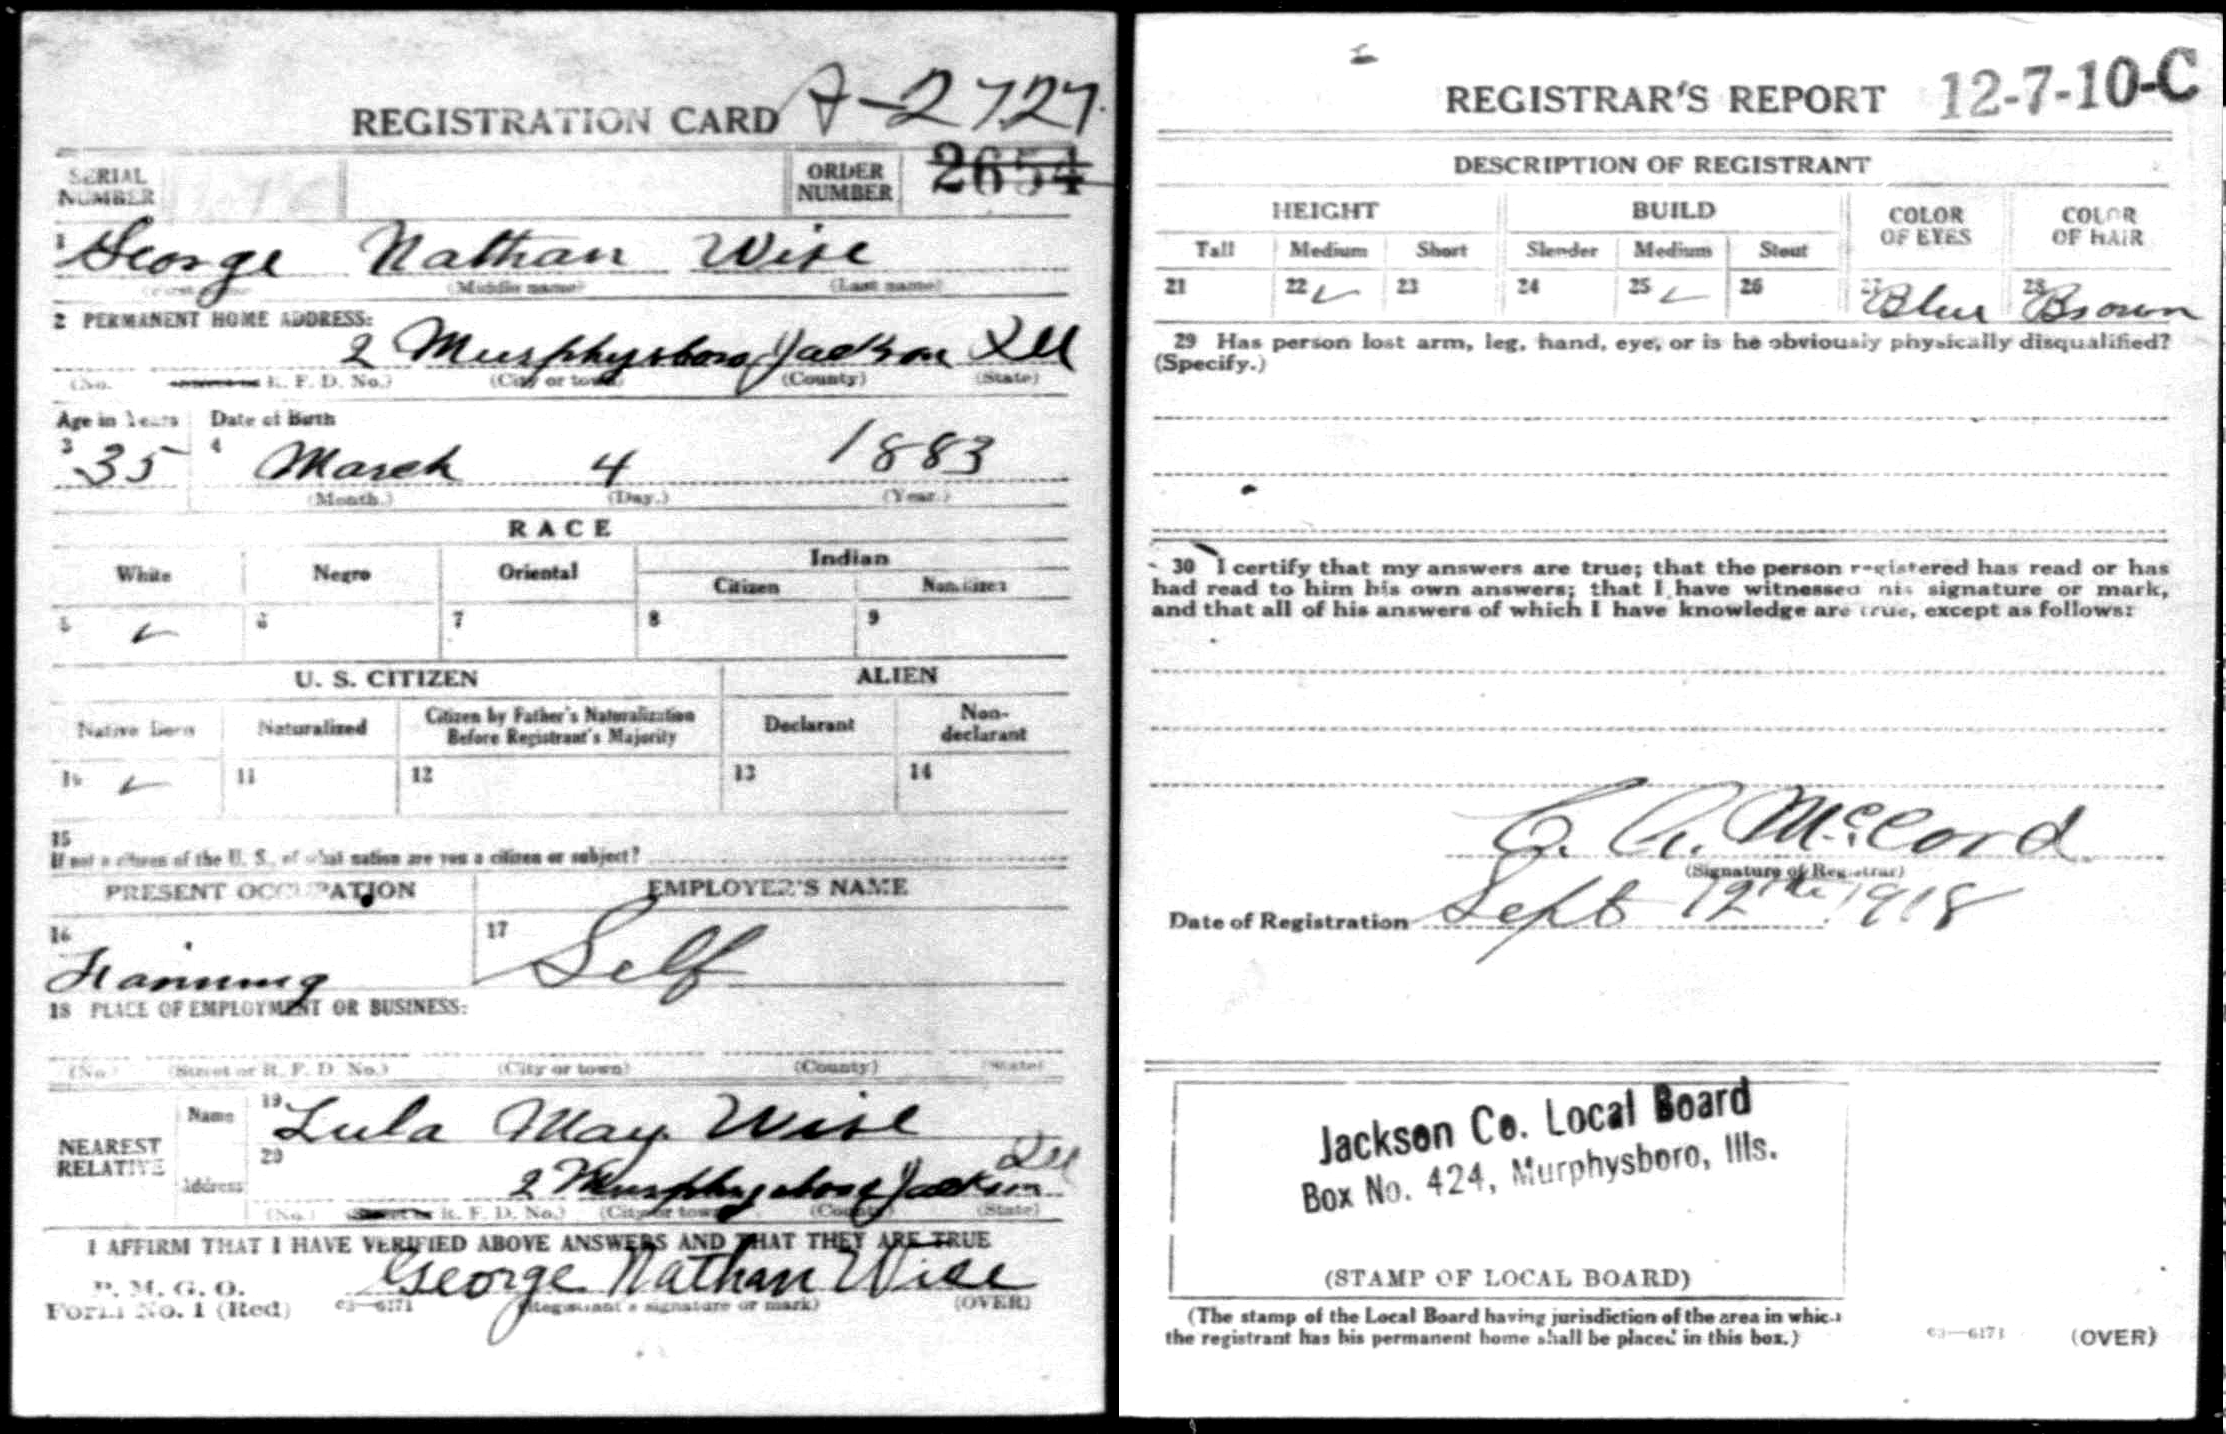 REGISTRATION CARD A-2727.
SERIAL NUMBER
ORDER NUMBER 2654
1 George Nathan Wise
(First name) (Middle name) (Last name)
2 PERMANENT HOME ADDRESS:
2 Murphysboro Jackson Ill
(No. R. F. D. No.) (City or town) (County) (State)
Age in Years Date of Birth
3 35 4 March 4 1883
(Month.) (Day.) (Year.)
RACE
White Negro Oriental Indian
Citizen Noncitizen
5 ✓ 6 7 8 9
U. S. CITIZEN ALIEN
Native Born Naturalized Citizen by Father's Naturalization Before Registrant's Majority Declarant Non-declarant
10 ✓ 11 12 13 14
15
If not a citizen of the U. S., of what nation are you a citizen or subject?
PRESENT OCCUPATION EMPLOYER'S NAME
16 Farming 17 Self
18 PLACE OF EMPLOYMENT OR BUSINESS:
(No.) (Street or R. F. D. No.) (City or town) (County) (State)
NEAREST RELATIVE
Name 19 Lula May Wise
Address 20 2 Murphysboro Jackson Ill
(No.) (Street or R. F. D. No.) (City or town) (County) (State)
I AFFIRM THAT I HAVE VERIFIED ABOVE ANSWERS AND THAT THEY ARE TRUE
P. M. G. O.
Form No. 1 (Red) 03—6171 George Nathan Wise
(Registrant's signature or mark) (OVER)
REGISTRAR'S REPORT 12-7-10-C
DESCRIPTION OF REGISTRANT
HEIGHT BUILD COLOR OF EYES COLOR OF HAIR
Tall Medium Short Slender Medium Stout
21 22 ✓ 23 24 25 ✓ 26 27 Blue 28 Brown
29 Has person lost arm, leg, hand, eye, or is he obviously physically disqualified?
(Specify.)
30 I certify that my answers are true; that the person registered has read or has
had read to him his own answers; that I have witnessed his signature or mark,
and that all of his answers of which I have knowledge are true, except as follows:
C. A. McCord
(Signature of Registrar)
Date of Registration Sept 12th 1918
Jackson Co. Local Board
Box No. 424, Murphysboro, Ills.
(STAMP OF LOCAL BOARD)
(The stamp of the Local Board having jurisdiction of the area in which
the registrant has his permanent home shall be placed in this box.)
03—6171 (OVER)